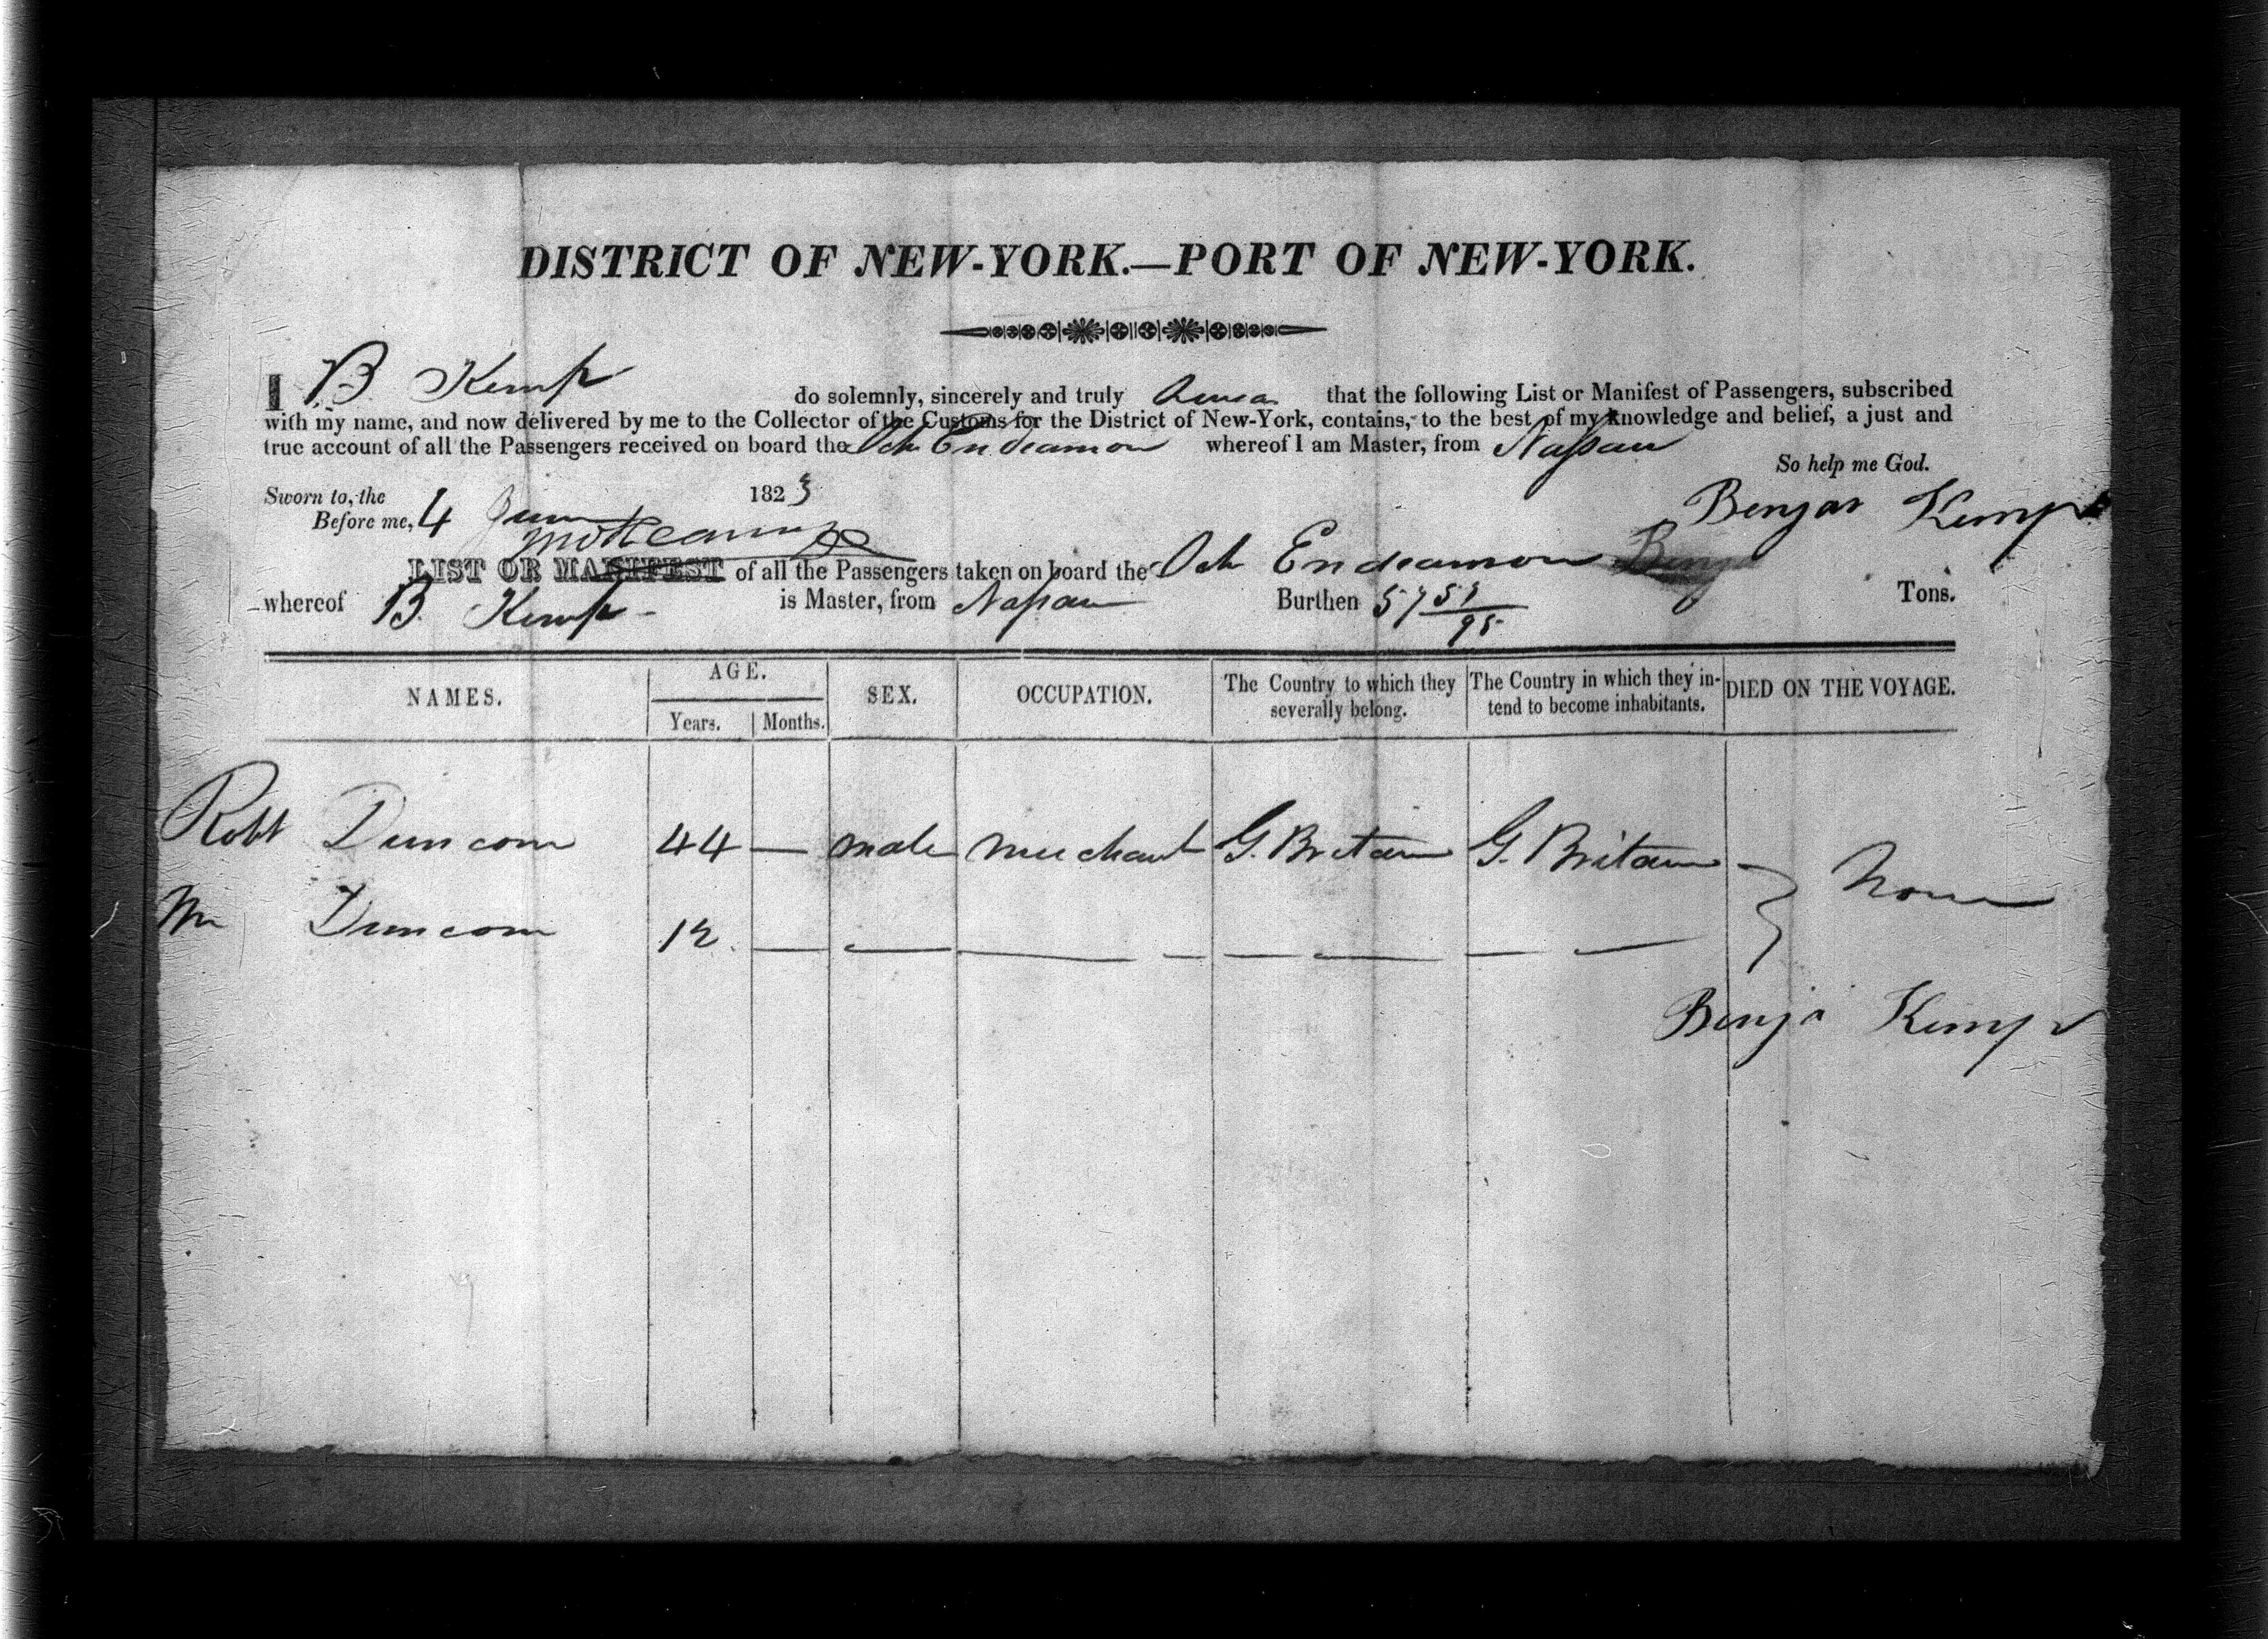 DISTRICT OF NEW-YORK.—PORT OF NEW-YORK.
I B Kemp do solemnly, sincerely and truly that the following List or Manifest of Passengers, subscribed
with my name, and now delivered by me to the Collector of the Customs for the District of New-York, contains, to the best of my knowledge and belief, a just and
true account of all the Passengers received on board the Sch Endeavour whereof I am Master, from Nassau
So help me God.
Sworn to, the 1823
Before me, 4 June
Benja Kemp
LIST OR MANIFEST of all the Passengers taken on board the Sch Endeavour
whereof B Kemp is Master, from Nassau Burthen 57 Tons.
NAMES. AGE. SEX. OCCUPATION. The Country to which they severally belong. The Country in which they intend to become inhabitants. DIED ON THE VOYAGE.
Years. Months.
Robt Duncom 44 — male merchant G. Britain G. Britain None
Wm Duncom 12 — — — — —
Benja Kemp